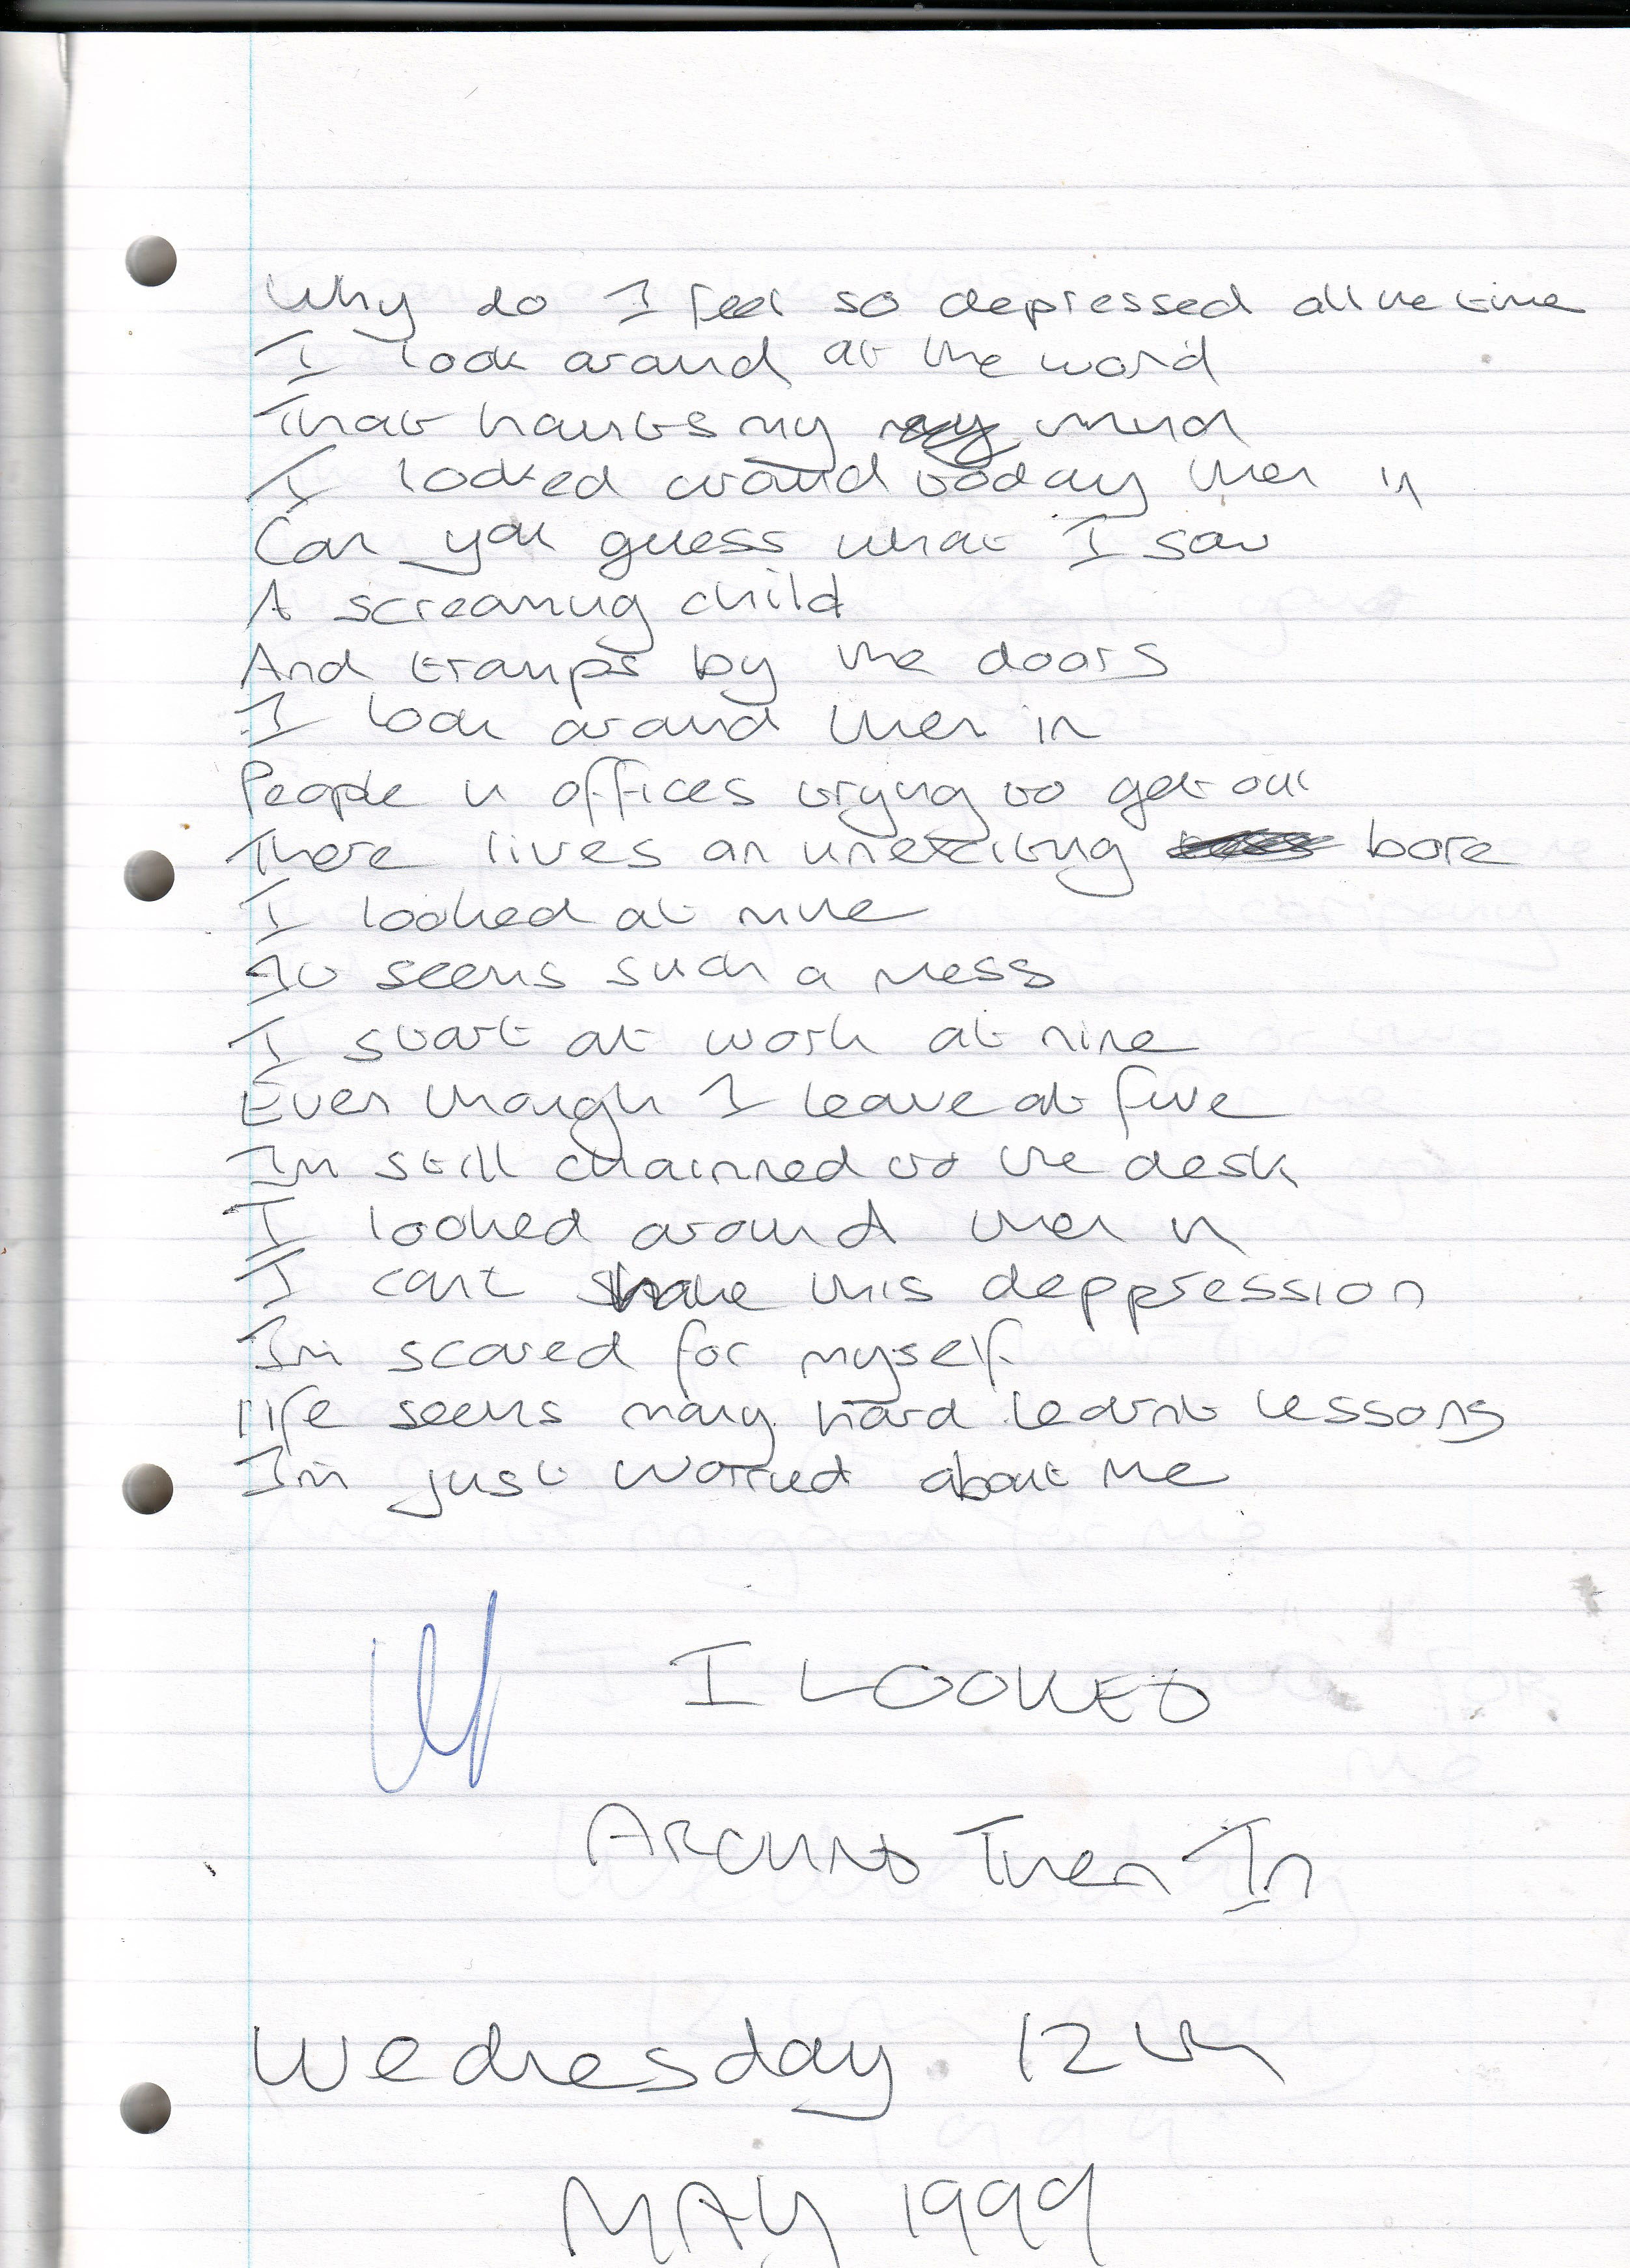 Why do I feel so depressed all the time
I look around at the world
That haunts my mind
I looked around today then in
Can you guess what I saw
A screaming child
And tramps by the doors
I look around then in
People in offices trying to get out
There lives an unexciting bore
I looked at mine
It seems such a mess
I start at work at nine
Even though I leave at five
Im still chainned to the desk
I looked around then in
I cant shake this deppression
Im scared for myself
life seems many hard learnt lessons
Im just worried about me
I LOOKED
AROUND Then In
Wednesday 12th
MAY 1999